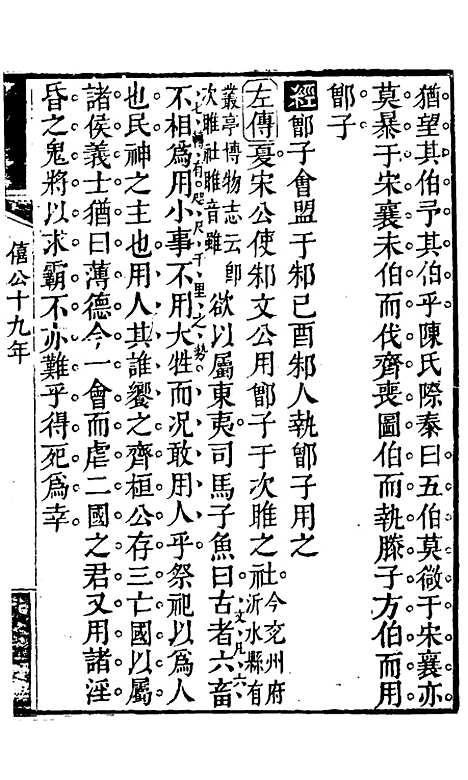 猶望其伯予其伯乎陳氏際泰曰五伯莫微于宋襄亦
莫暴于宋襄未伯而伐齊喪圖伯而執滕子方伯而用
鄫子
經鄫子會盟于邾己酉邾人執鄫子用之
左傳夏宋公使邾文公用鄫子于次睢之社今兖州府沂水縣有
叢亭博物志云卽次睢社睢音雖欲以屬東夷司馬子魚曰古者六畜文凡六
不相爲用小事不用大牲而况敢用人乎祭祀以爲人七轉有咫尺千里之勢
也民神之主也用人其誰饗之齊桓公存三亡國以屬
諸侯義士猶曰薄德今一會而虐二國之君又用諸淫
昏之鬼將以求霸不亦難乎得死爲幸
僖公十九年